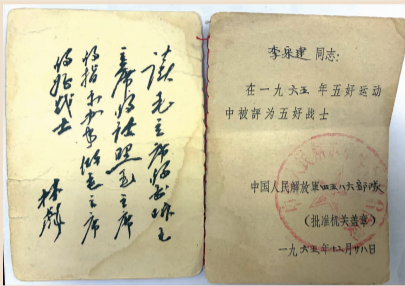 读毛主席的书听毛
主席的话照毛主席
的指示办事做毛主席
的好战士
林彪
李泉建 同志：
在一九六五年五好运动
中被评为五好战士
中国人民解放军四五八六部队
（批准机关盖章）
一九六五年十二月廿八日